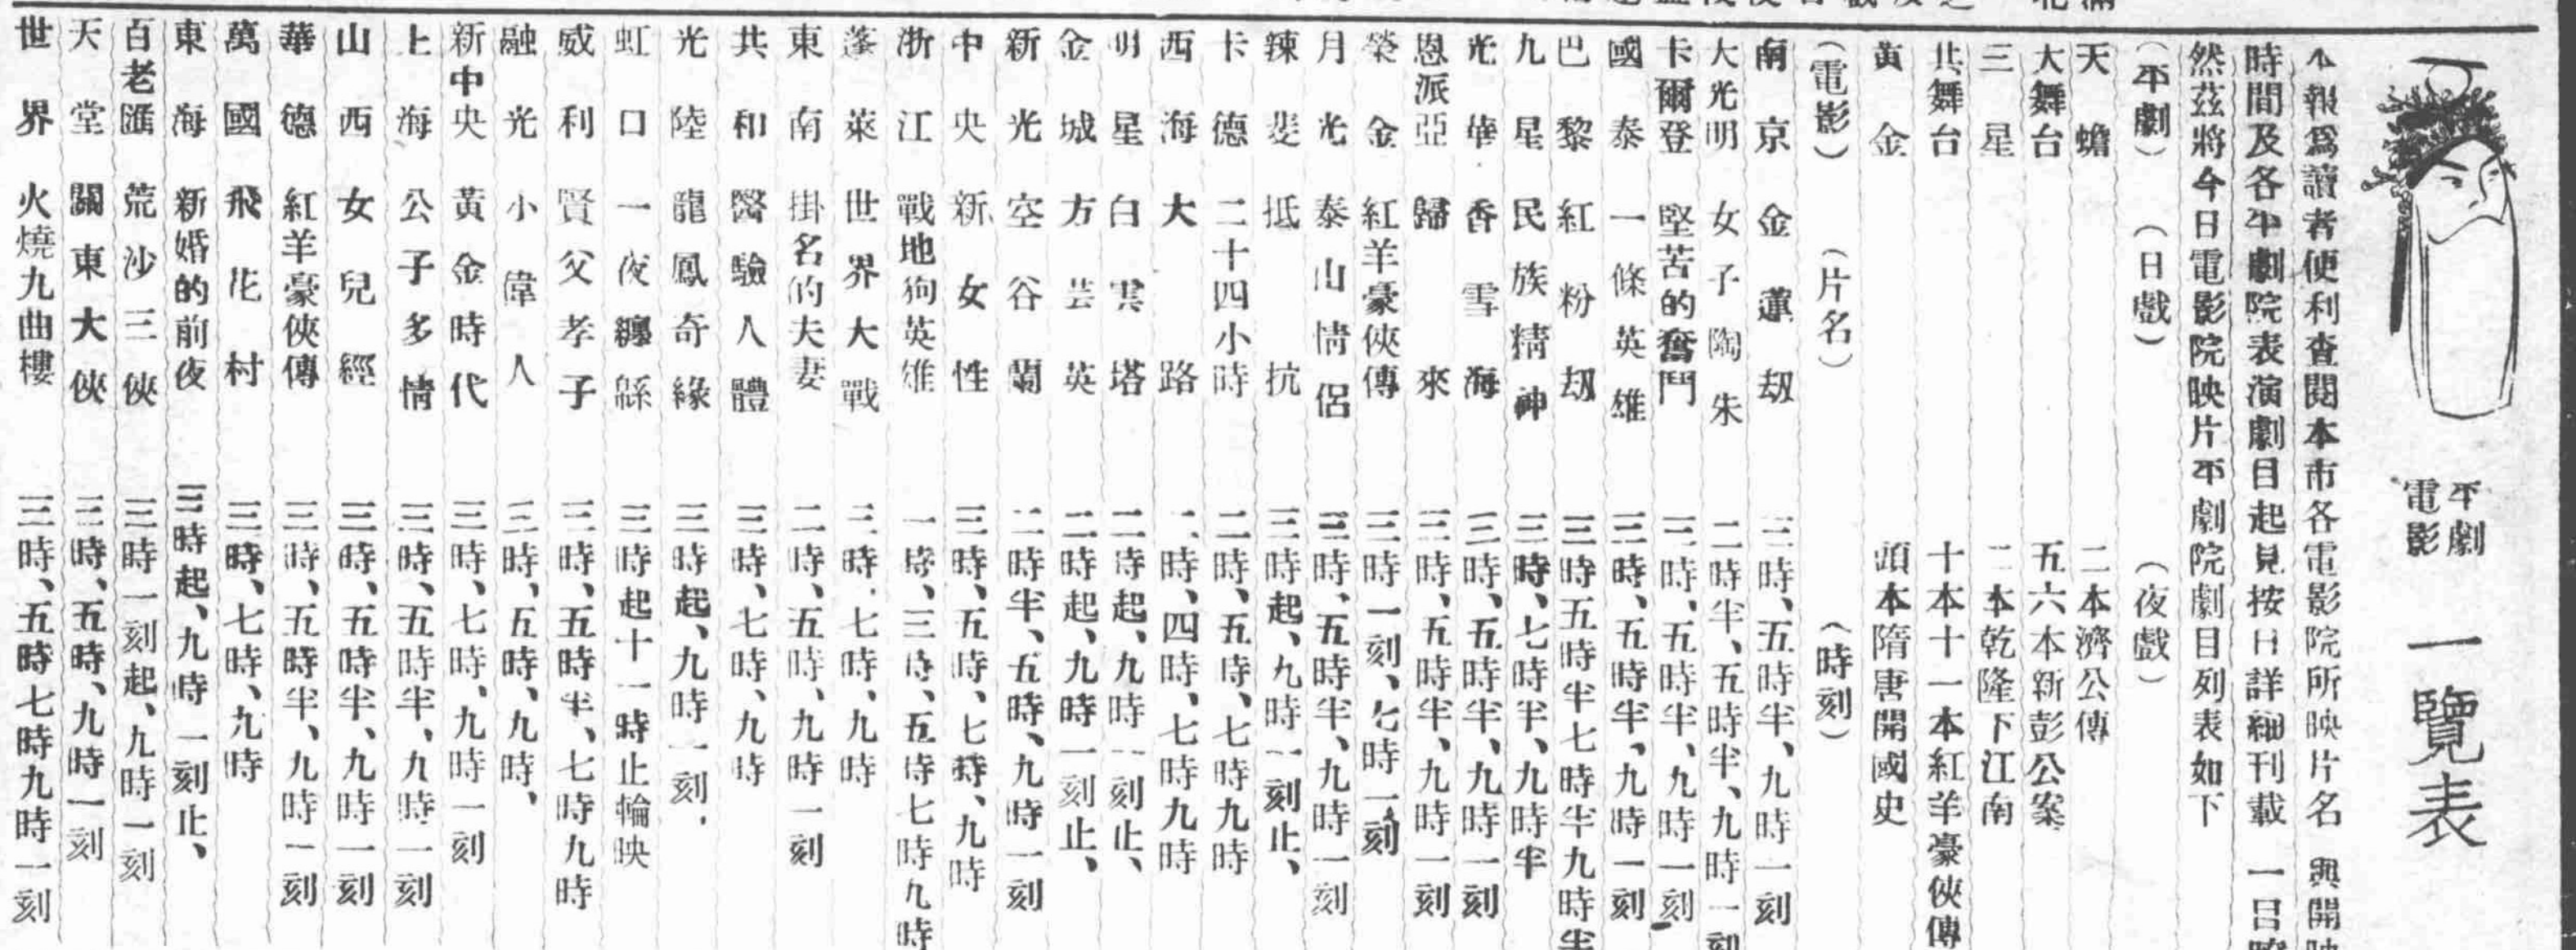 平劇
電影
一覽表
本報爲讀者便利查閱本市各電影院所映片名與開映
時間及各平劇院表演劇目起見按日詳細刊載一目瞭
然茲將今日電影院映片平劇院劇目列表如下
（平劇）（日戲）（夜戲）
天蟾 二本濟公傳
大舞台 五六本新彭公案
三星 二本乾隆下江南
共舞台 十本十一本紅羊豪俠傳
黃金 頭本隋唐開國史
（電影）（片名）（時刻）
南京 金蓮刼 三時、五時半、九時一刻
大光明 女子陶朱 二時半、五時半、九時一刻
卡爾登 堅苦的奮鬥 三時、五時半、九時一刻
國泰 一條英雄 三時、五時半、九時一刻
巴黎 紅粉刼 三時五時半七時半九時半
九星 民族精神 三時、七時半、九時半
光華 香雪海 三時、五時半、九時一刻
恩派亞 歸來 三時、五時半、九時一刻
榮金 紅羊豪俠傳 三時一刻、七時一刻
月光 泰山情侶 三時、五時半、九時一刻
辣斐 抵抗 三時起、九時一刻止、
卡德 二十四小時 二時、五時、七時九時
西海 大路 時、四時、七時九時
明星 白雲塔 二時起、九時一刻止、
金城 方芸英 二時起、九時一刻止、
新光 空谷蘭 二時半、五時、九時一刻
中央 新女性 三時、五時、七時、九時
浙江 戰地狗英雄 一時、三時、五時七時九時
蓬萊 世界大戰 三時、七時、九時
東南 掛名的夫妻 二時、五時、九時一刻
共和 醫驗人體 三時、七時、九時
光陸 龍鳳奇緣 三時起、九時一刻、
虹口 一夜纏緜 三時起十一時止輪映
威利 賢父孝子 三時、五時半、七時九時
融光 小偉人 三時、五時、九時、
新中央 黃金時代 三時、七時、九時一刻
上海 公子多情 三時、五時半、九時一刻
山西 女兒經 三時、五時半、九時一刻
華德 紅羊豪俠傳 三時、五時半、九時一刻
萬國 飛花村 三時、七時、九時
東海 新婚的前夜 三時起、九時一刻止、
百老匯 荒沙三俠 三時一刻起、九時一刻
天堂 關東大俠 三時、五時、九時一刻
世界 火燒九曲樓 三時、五時七時九時一刻